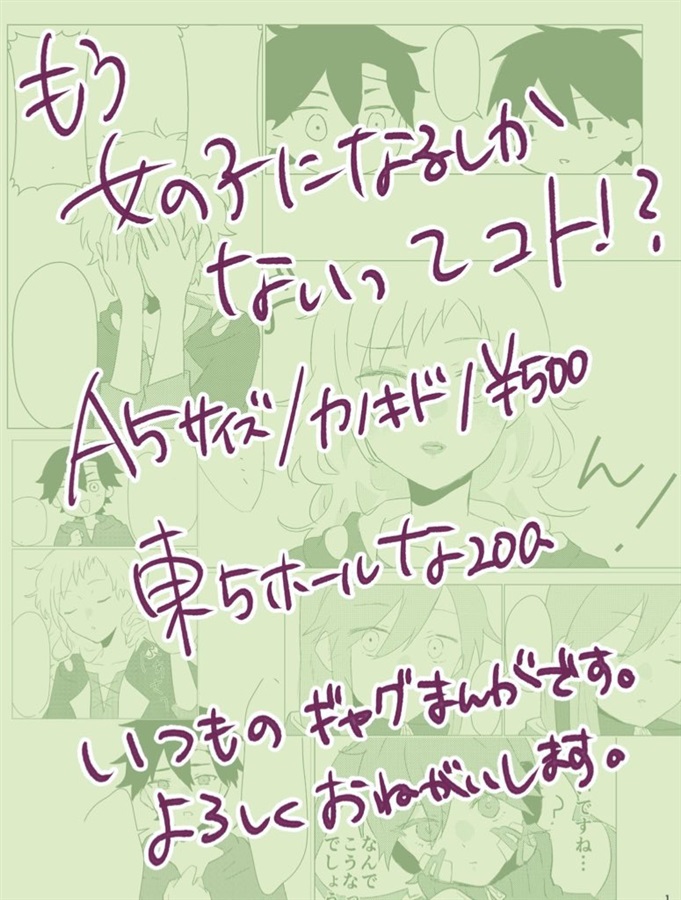 もう
女の子になるしか
ないってコト!?
A5サイズ/カノキド/¥500
東5ホールな20a
いつものギャグまんがです。
よろしくおねがいします。
ん!
…ですね…
?
なんで
こうなっ
でしょう
1